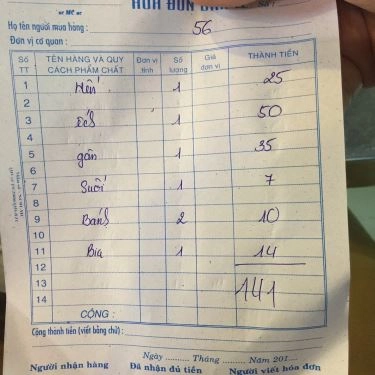 HÓA ĐƠN BÁN
Số :
Họ tên người mua hàng : 56
Đơn vị cơ quan :
Số TT TÊN HÀNG VÀ QUY CÁCH PHẨM CHẤT Đơn vị tính Số lượng Giá đơn vị THÀNH TIỀN
1 Hến 1 25
2
3 Ếch 1 50
4
5 gân 1 35
6
7 Suối 1 7
8
9 Bánh 2 10
10
11 Bia 1 14
12
13 141
14
CỘNG :
Cộng thành tiền (viết bằng chữ) :
Ngày .......... Tháng .......... Năm 201....
Người nhận hàng Đã nhận đủ tiền Người viết hóa đơn